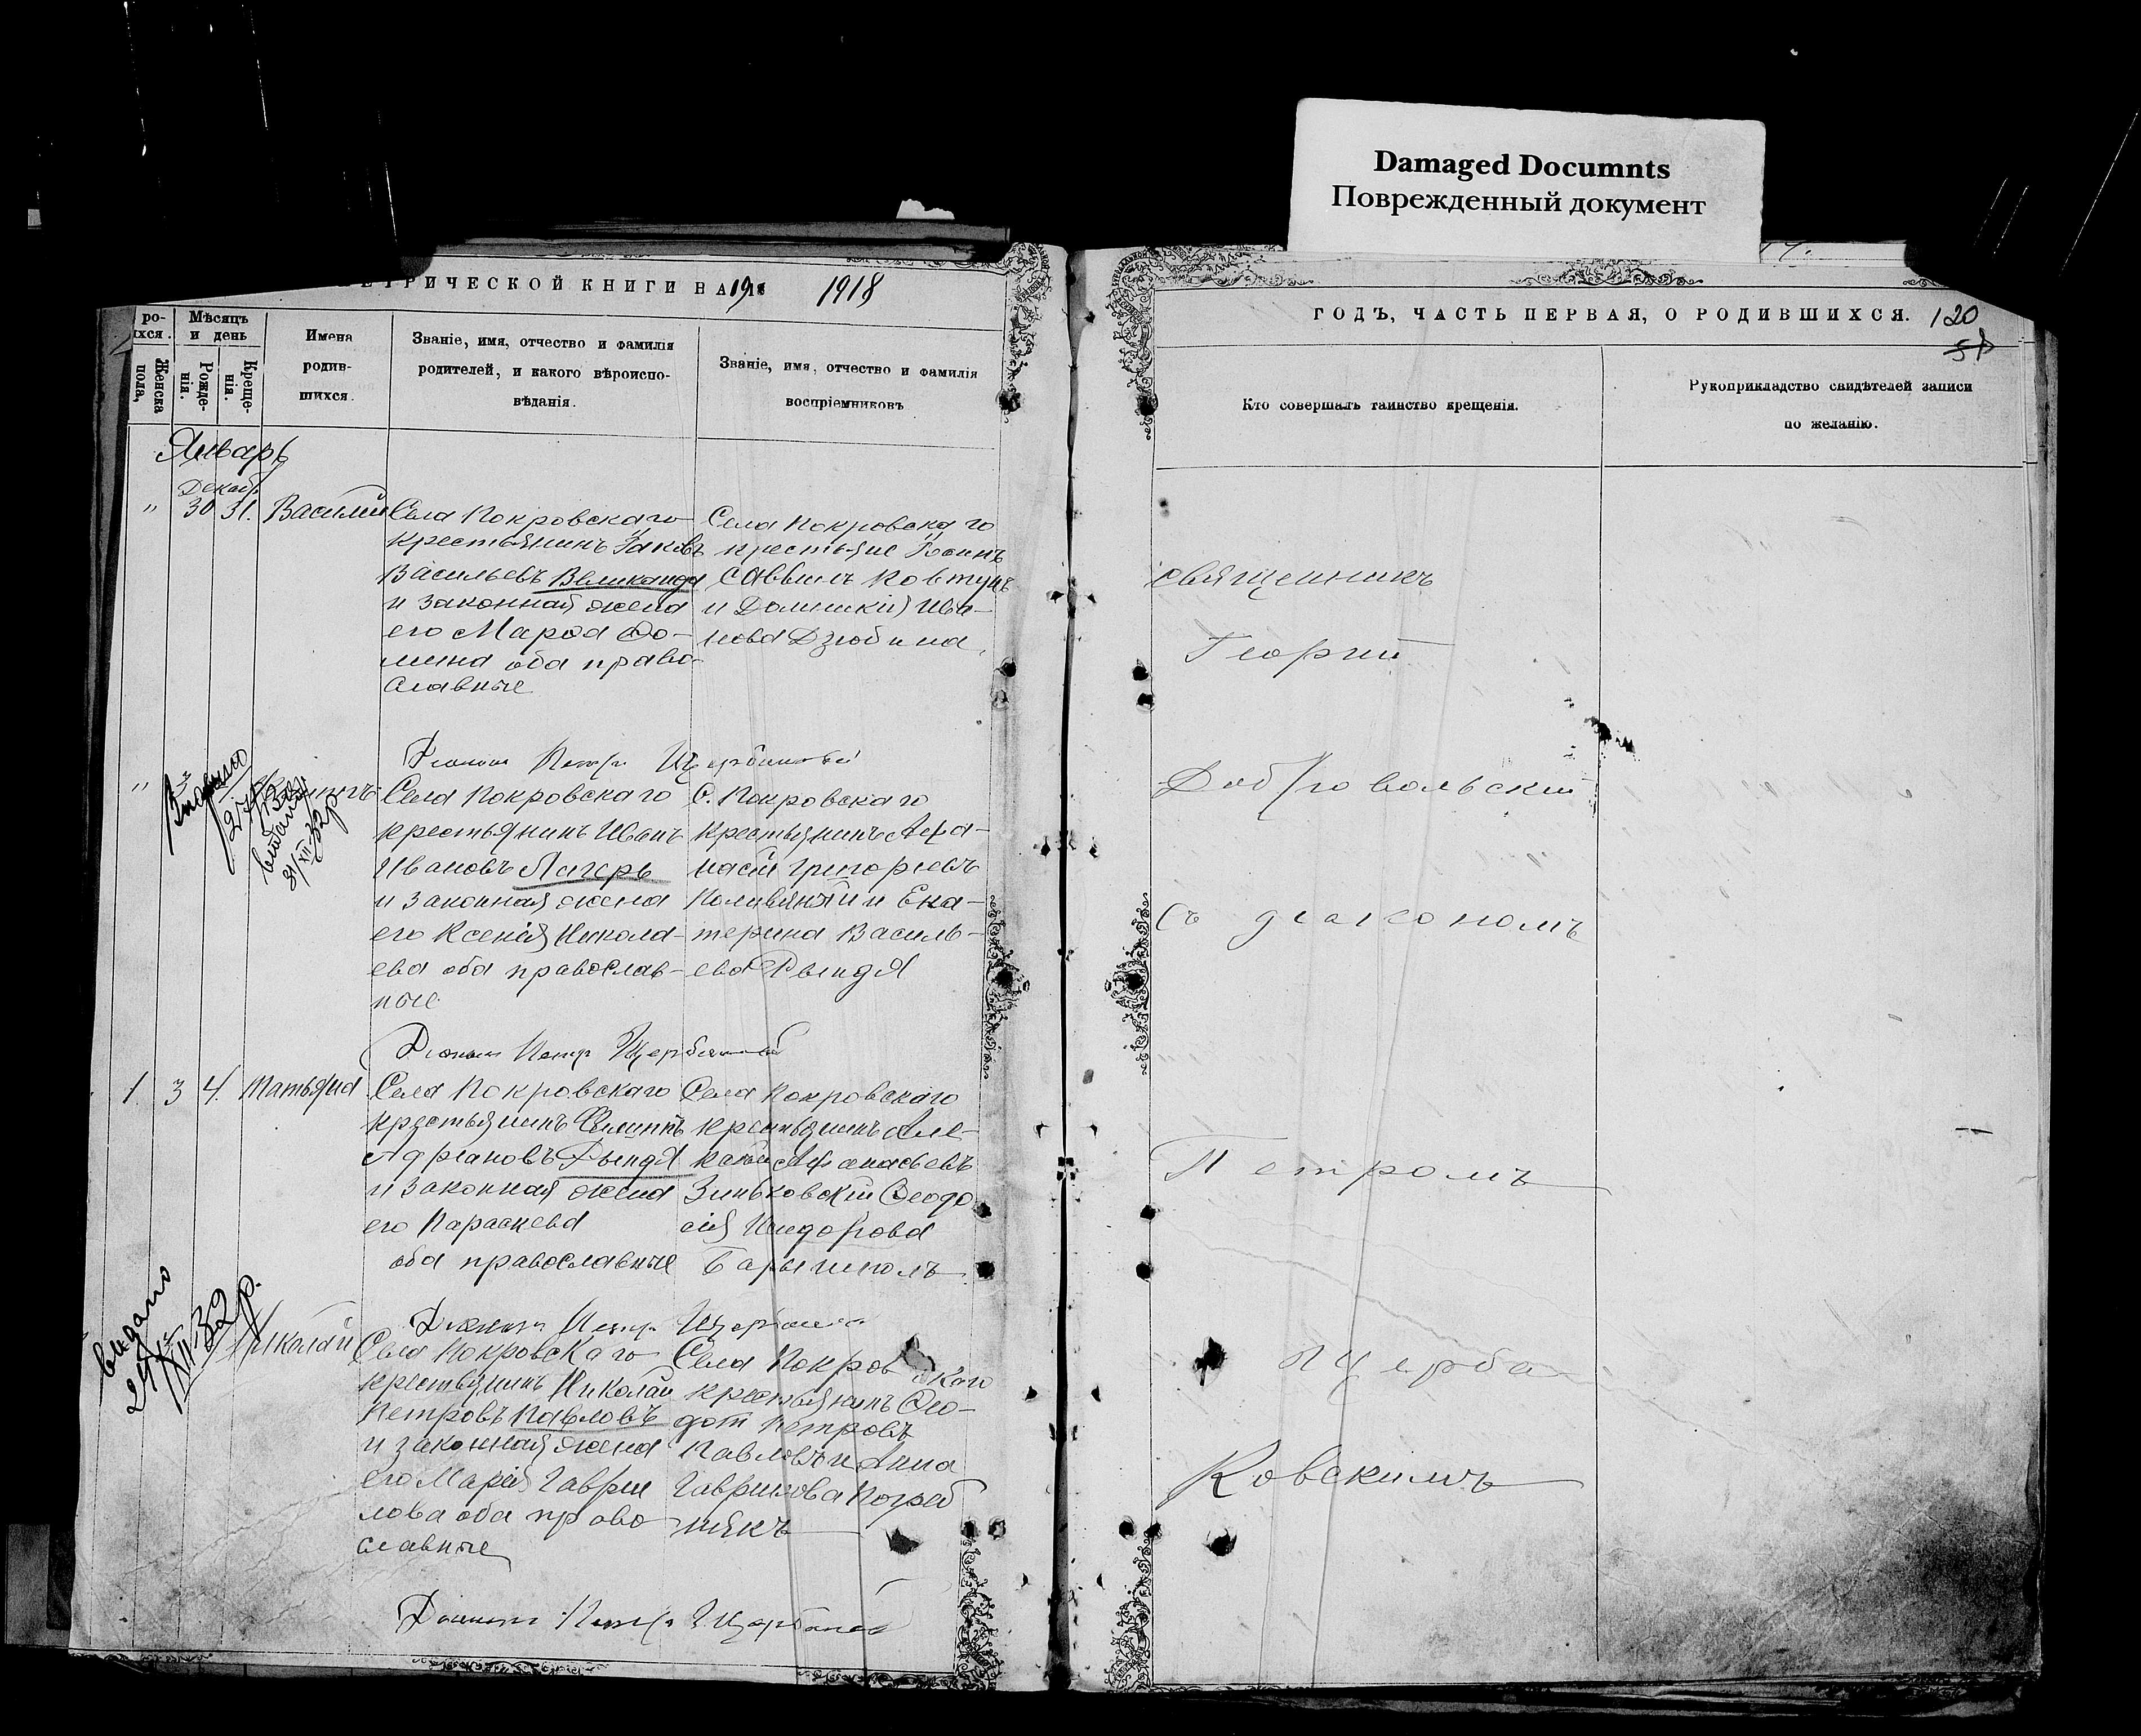 Damaged Documnts
Поврежденный документ
ТРИЧЕСКОЙ КНИГИ НА 191 1918
ГОДЪ, ЧАСТЬ ПЕРВАЯ, О РОДИВШИХСЯ. 120
ро-
хся.
Женска
пола,
Мѣсяцъ
и день
Рожде-
нія.
Креще-
нія.
Имена
родив-
шихся.
Званіе, имя, отчество и фамилія
родителей, и какого вѣроиспо-
вѣданія.
Званіе, имя, отчество и фамилія
воспріемниковъ
Кто совершалъ таинство крещенія.
Рукоприкладство свидѣтелей записи
по желанію.
Январь
Декаб.
" 30 31. Василий
Села Покровскаго
крестьянинъ Іаковъ
Васильевъ Великанда
и законная жена
его Марѳа Ѳо-
мина оба право-
славные
Села Покровскаго
крестьяне
Саввинъ Ковтунъ
и Домникія Ива-
нова Дзюбина
Діаконъ Петръ Щербинскій
"
27
видано
31/XII 32р
Села Покровскаго
крестьянинъ Иванъ
Ивановъ Лагерь
и законная жена
его Ксенія Никола-
ева оба православ-
ные.
С. Покровскаго
крестьянинъ Афа-
насій Григорьевъ
и Ека-
терина Василь-
ева Рындя
Діаконъ Петръ Щербинскій
1. 3 4. Татьяна
Села Покровскаго
крестьянинъ
Адріановъ Рындя
и законная жена
его Параскева
оба православные
Села Покровскаго
крестьянинъ Але-
Афанасьевъ
Зиньковскій Ѳеодо
сія Исидорова
Барышполъ
Діаконъ Петръ
видано
XII 32р.
Николай
Села Покровскаго
крестьянинъ Николай
Петровъ Павловъ
и законная жена
его Марія Гаври
лова оба право
славные
Села Покров скаго
крестьянинъ Ѳео-
дотъ Петровъ
Павловъ и Анна
Гаврилова Погреб
някъ
Діаконъ Петръ
священникъ
Георгій
Добровольскій
съ діакономъ
Петромъ
Щерба
Ковскимъ